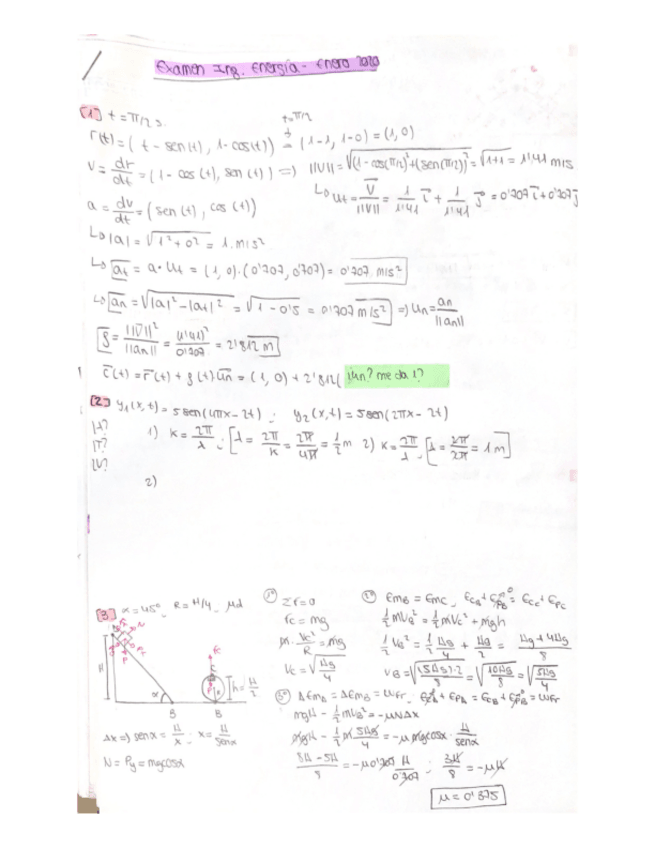 Examen Ing. Energía - Enero 2020
[1] t = π/2 s.
t=π/2
r(t) = ( t - sen(t) , 1 - cos(t) ) = (1-1, 1-0) = (1, 0)
V = dr/dt = (1 - cos(t), sen(t)) => ||V|| = √(1-cos(π/2))²+(sen(π/2))² = √1+1 = 1'41 m/s
↳ ut = V/||V|| = 1/1'41 i + 1/1'41 j = 0'707 i + 0'707 j
a = dv/dt = (sen(t), cos(t))
↳ |a| = √1²+0² = 1 m/s²
↳ at = a · ut = (1, 0)·(0'707, 0'707) = 0'707 m/s²
↳ an = √|a|² - |at|² = √1 - 0'5 = 0'707 m/s² => un = an/||an||
ρ = ||V||²/||an|| = (1'41)²/0'707 = 2'812 m
c(t) = r(t) + ρ(t) un = (1, 0) + 2'812( ¿un? me da 1?
[2] y1(x,t) = 5 sen(4πx - 2t) ; y2(x,t) = 5 sen(2πx - 2t)
¿λ?
¿T?
¿V?
1) K = 2π/λ ; λ = 2π/K = 2π/4π = 1/2 m 2) K = 2π/λ ; λ = 2π/2π = 1 m
2)
[3] α = 45°, R = H/4, μd
N
H
α
B
C
B
h = H/2
Δx => senα = H/x ; x = H/senα
N = Py = mgcosα
1º ΣF = 0
Fc = mg
m · Vc²/R = mg
Vc = √Hg/4
2º EmB = EmC ; EcB + EpB = EcC + EpC
1/2 mVB² = 1/2 mVc² + mgh
1/2 VB² = 1/2 Hg/4 + Hg/2 = Hg + 4Hg/8
VB = √(5Hg)·2/8 = √10Hg/8 = √5Hg/4
3º ΔEmA = ΔEmB = WFr ; EcA + EpA = EcB + EpB = WFr
mgH - 1/2 mVB² = -μNΔx
mgH - 1/2 m 5Hg/4 = -μ mgcosα · H/senα
8H - 5H/8 = -μ 0'707 H/0'707 ; 3H/8 = -μH
μ = 0'375